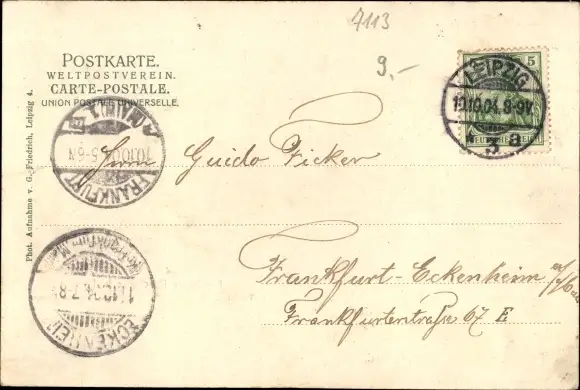 7113
9,-
POSTKARTE.
WELTPOSTVEREIN.
CARTE-POSTALE.
UNION POSTALE UNIVERSELLE.
5
LEIPZIG
10.10.04. 8-9V.
3
a
Herrn Guido Ficker
FRANKFURT
5-6N
Frankfurt-Eckenheim a/M
Frankfurterstraße 67 E
ECKENHEIM
7-8
Phot. Aufnahme v. G. Friedrich, Leipzig 4.